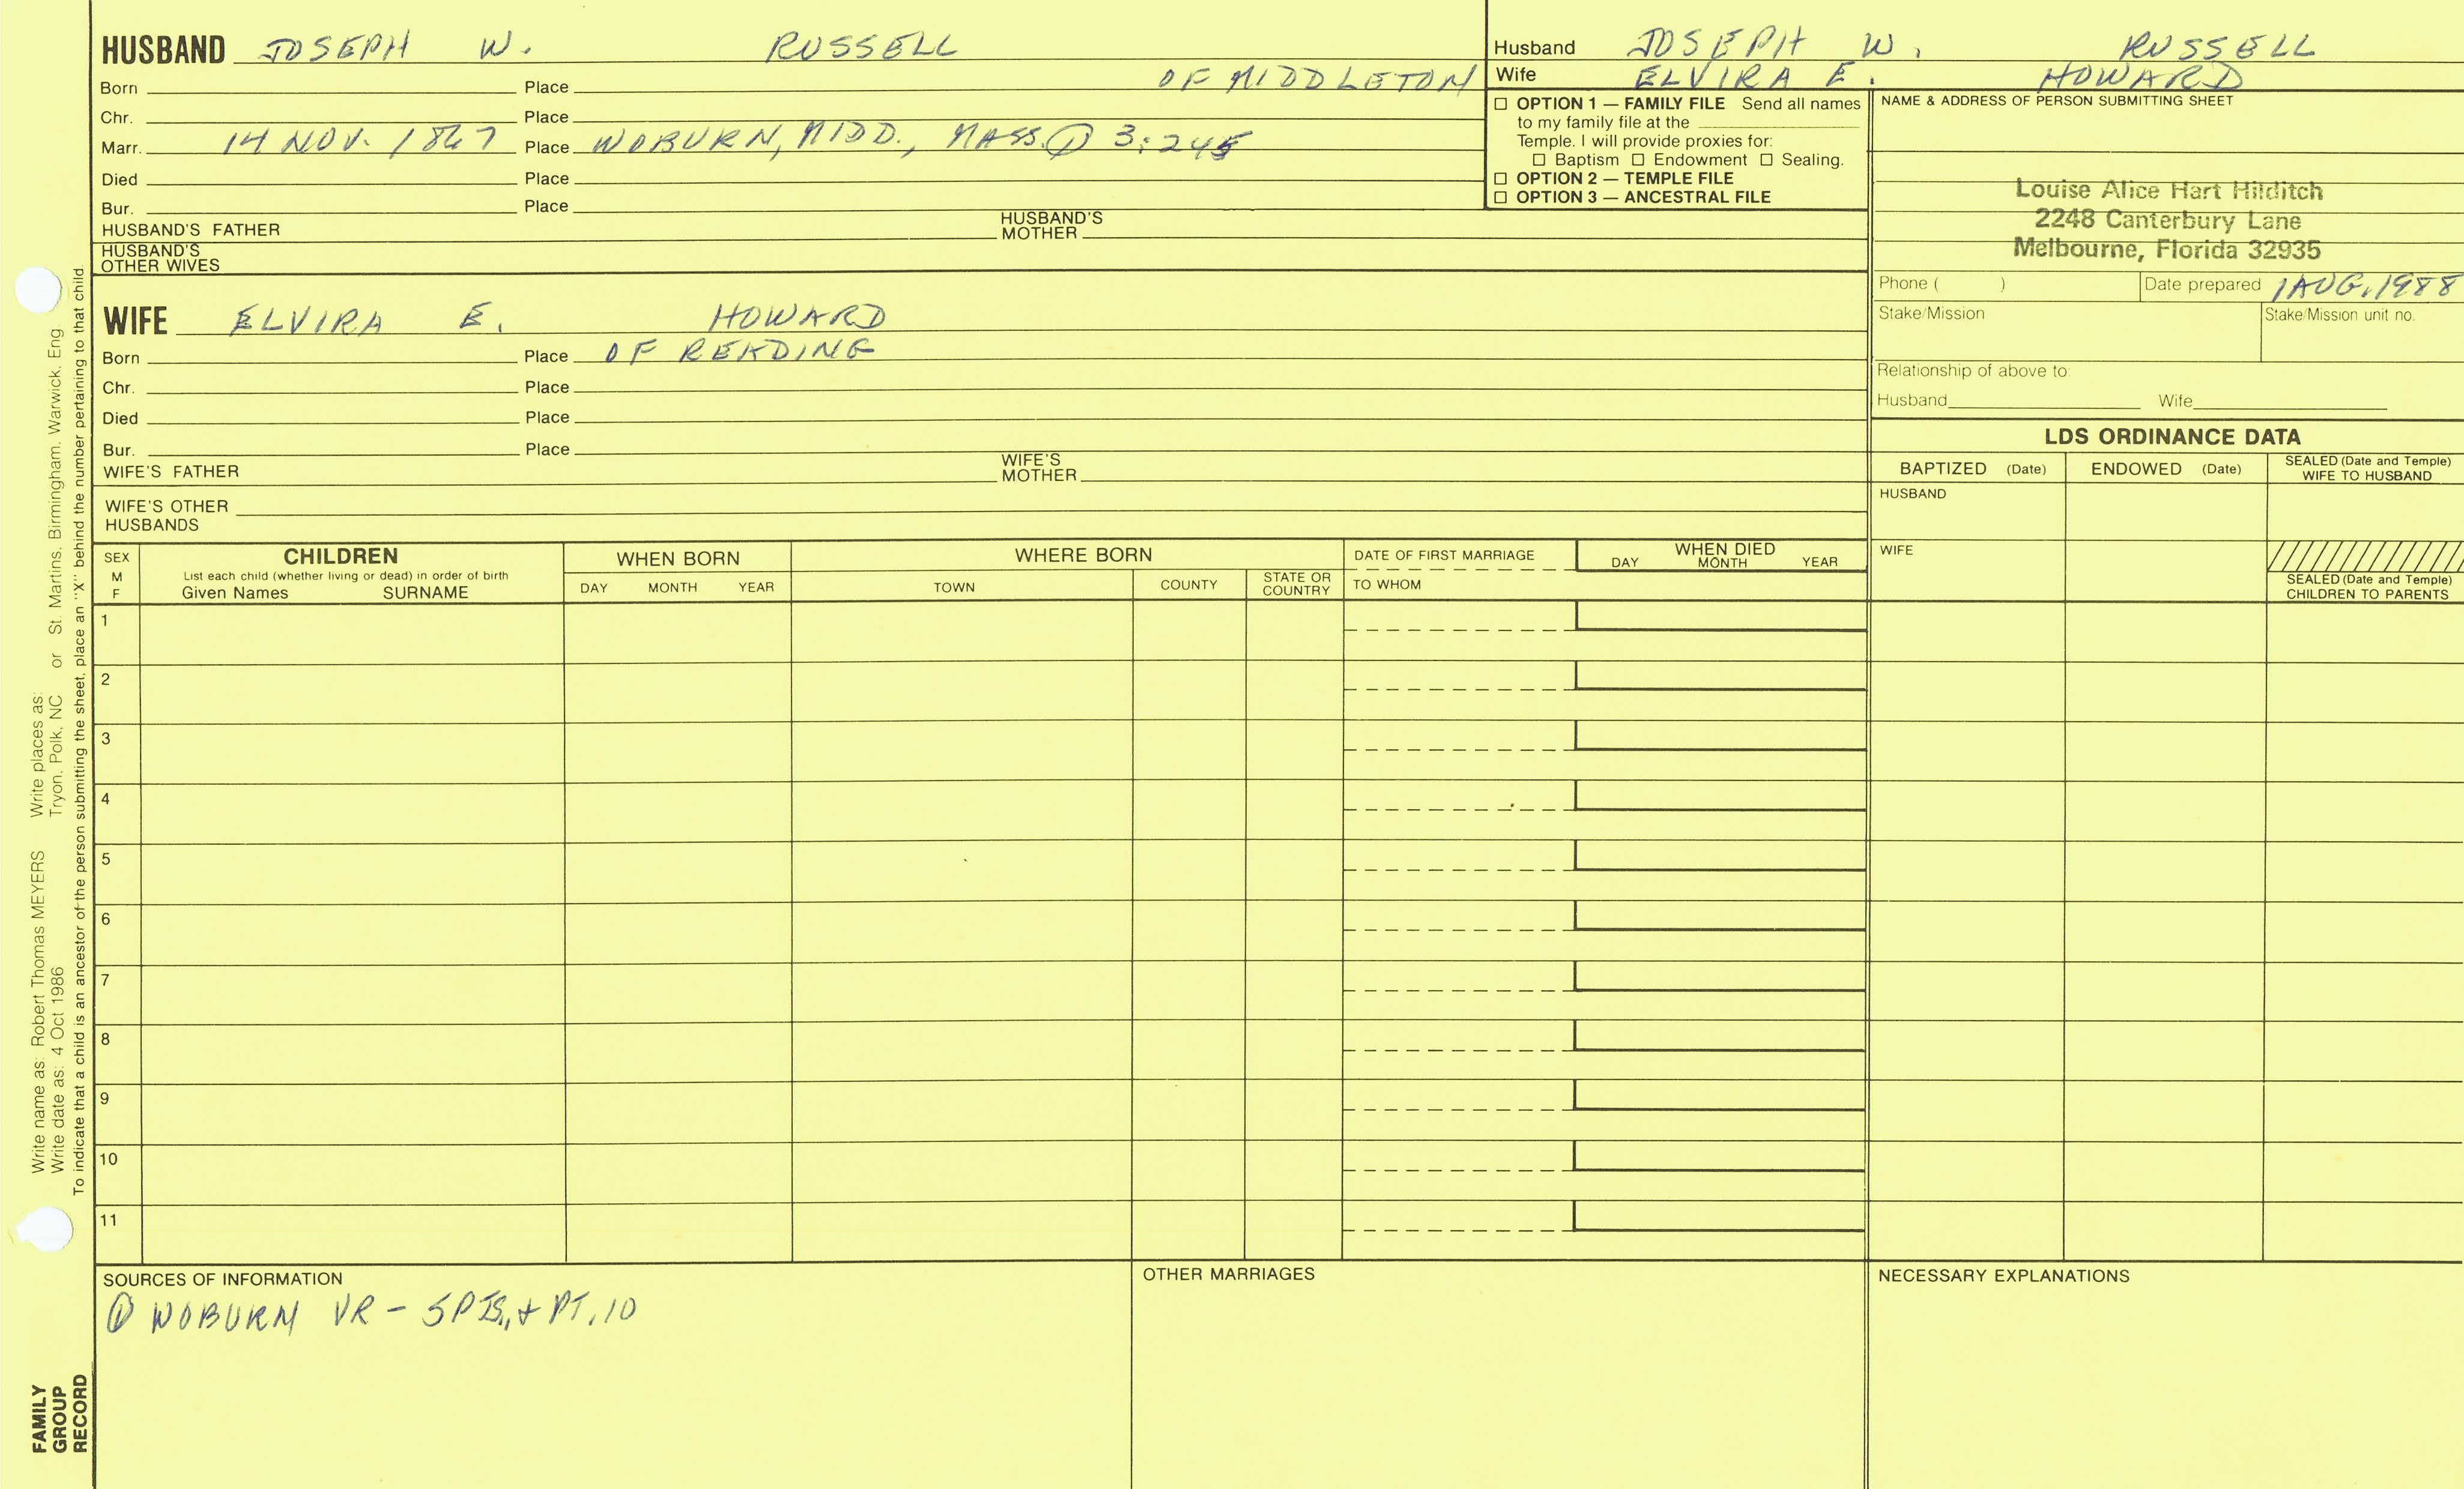 HUSBAND JOSEPH W. RUSSELL
Born Place OF MIDDLETON
Chr. Place
Marr. 14 NOV. 1867 Place WOBURN, MIDD., MASS. ① 3:245
Died Place
Bur. Place
HUSBAND'S FATHER HUSBAND'S MOTHER
HUSBAND'S OTHER WIVES
WIFE ELVIRA E. HOWARD
Born Place OF READING
Chr. Place
Died Place
Bur. Place
WIFE'S FATHER WIFE'S MOTHER
WIFE'S OTHER HUSBANDS
Husband JOSEPH W. RUSSELL
Wife ELVIRA E. HOWARD
☐ OPTION 1 — FAMILY FILE Send all names
to my family file at the
Temple. I will provide proxies for:
☐ Baptism ☐ Endowment ☐ Sealing.
☐ OPTION 2 — TEMPLE FILE
☐ OPTION 3 — ANCESTRAL FILE
NAME & ADDRESS OF PERSON SUBMITTING SHEET
Louise Alice Hart Hilditch
2248 Canterbury Lane
Melbourne, Florida 32935
Phone ( ) Date prepared 1 AUG. 1988
Stake/Mission Stake/Mission unit no.
Relationship of above to:
Husband Wife
LDS ORDINANCE DATA
BAPTIZED (Date) ENDOWED (Date) SEALED (Date and Temple) WIFE TO HUSBAND
HUSBAND
WIFE
SEALED (Date and Temple) CHILDREN TO PARENTS
SEX M F
CHILDREN
List each child (whether living or dead) in order of birth
Given Names SURNAME
WHEN BORN
DAY MONTH YEAR
WHERE BORN
TOWN COUNTY STATE OR COUNTRY
DATE OF FIRST MARRIAGE
TO WHOM
WHEN DIED
DAY MONTH YEAR
1
2
3
4
5
6
7
8
9
10
11
SOURCES OF INFORMATION
① WOBURN VR - 5 PTS, + PT. 10
OTHER MARRIAGES
NECESSARY EXPLANATIONS
Write name as: Robert Thomas MEYERS Write places as:
Write date as: 4 Oct 1986 Tryon, Polk, NC or St. Martins, Birmingham, Warwick, Eng
To indicate that a child is an ancestor of the person submitting the sheet, place an "X" behind the number pertaining to that child.
FAMILY
GROUP
RECORD